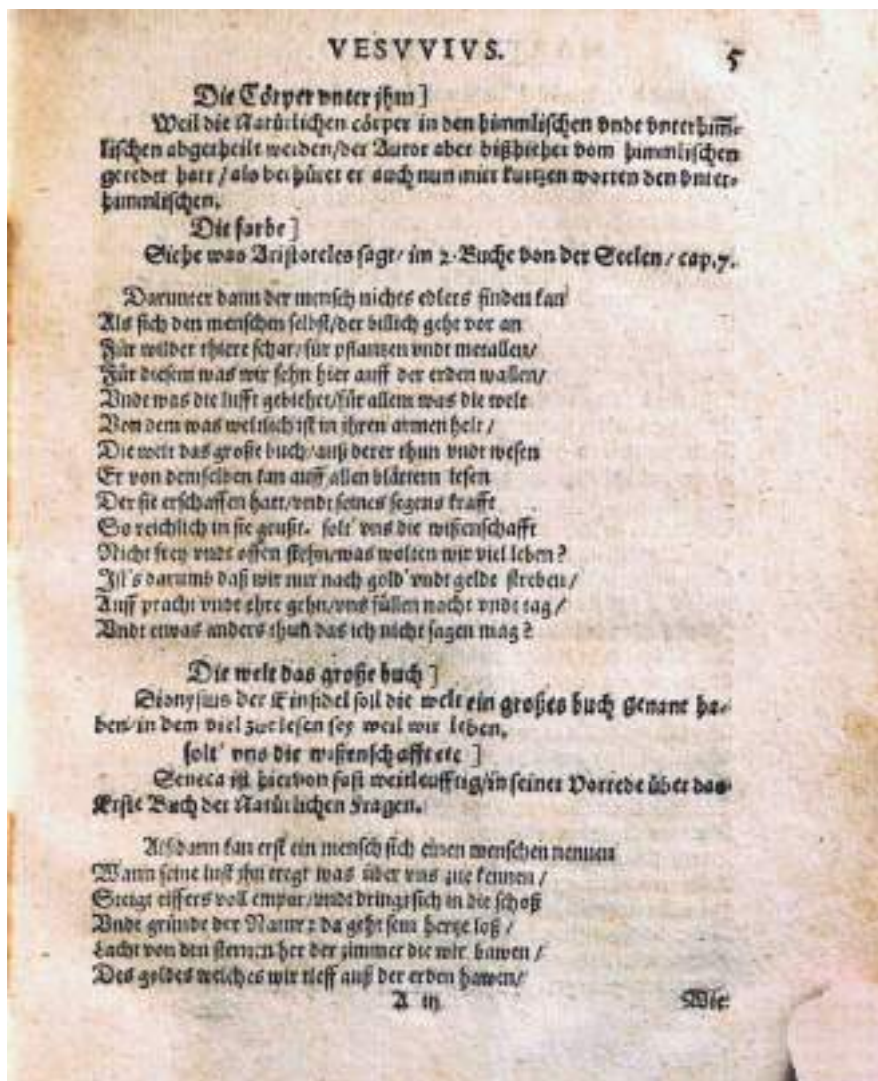 VESVVIVS. 5
Die Cörper vnter jhm ]
Weil die Natürlichen cörper in den himmlischen vnde vnterhim̃-
lischen abgetheilt werden/der Autor aber bißhieher vom himmlischen
geredet hatt / als berhüret er auch nun mitt kurtzen worten den vnter-
himmlischen.
Die farbe ]
Siehe was Aristoteles sagt/ im 2. Buche von der Seelen / cap.7.
Darunter dann der mensch nichts edlers finden kan
Als sich den menschen selbst/der billich geht vor an
Für wilder thiere schar/für pflantzen vndt metallen/
Für diesem was wir sehn hier auff der erden wallen/
Vndt was die lufft gebiehret/für allem was die welt
Von dem was weltlich ist in ihren armen helt /
Die welt das große buch/auß derer thun vndt wesen
Er von demselben kan auff allen blättern lesen
Der sie erschaffen hatt/vndt seines segens krafft
So reichlich in sie geußt. solt' vns die wißenschafft
Nicht frey vndt offen stehn/was wolten wir viel leben ?
Ist's darumb daß wir nur nach gold' vndt gelde streben /
Auff pracht vndt ehre gehn/vns füllen nacht vndt tag /
Vndt etwas anders thun das ich nicht sagen mag ?
Die welt das große buch ]
Dionysius der Einsidel soll die welt ein großes buch genant ha-
ben/in dem viel zue lesen sey weil wir leben.
solt' vns die wißenschafft etc ]
Seneca ist hiervon fast weitleufftig/in seiner Vorrede über das
Erste Buch der Natürlichen Fragen.
Alsdann kan erst ein mensch sich einen menschen nennen
Wann seine lust ihn eregt was über vns zue kennen /
Steigt eiffers voll empor/vndt dringt sich in die schoß
Vndt gründe der Natur: da geht sein hertze loß /
Lacht von den sternen her der zimmer die wir bawen /
Des goldes welches wir tieff auß der erden hawen/
A iij Wie